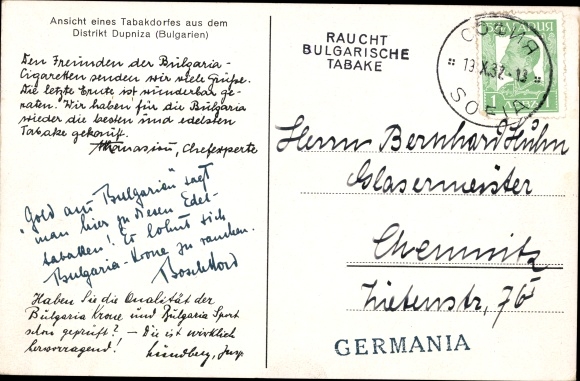 Ansicht eines Tabakdorfes aus dem
Distrikt Dupniza (Bulgarien)
Den Freunden der Bulgaria-
Cigaretten senden wir viele Grüße.
Die letzte Ernte ist wunderbar ge-
raten. Wir haben für die Bulgaria
wieder die besten und edelsten
Tabake gekauft.
Chefexperte
"Gold aus Bulgarien" sagt
man hier zu diesen Edel-
tabaken! Es lohnt sich
Bulgaria-Krone zu rauchen.
Haben Sie die Qualität der
Bulgaria Krone und Bulgaria Sport
schon geprüft? - Die ist wirklich
hervorragend! Lundberg, Insp.
RAUCHT
BULGARISCHE
TABAKE
СОФИЯ
13.X.32-13
SOFIA
1 1
Herrn Bernhard Huhn
Glasermeister
Chemnitz
Zietenstr, 76
GERMANIA